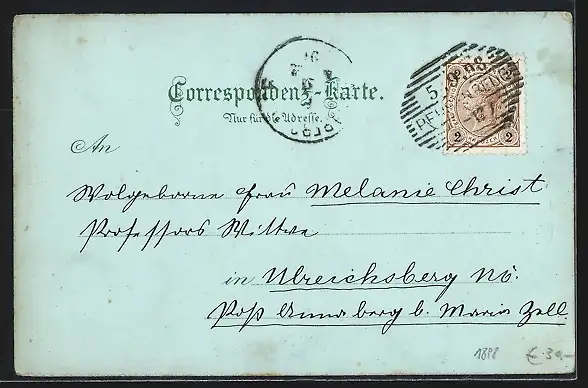 Correspondenz-Karte.
Nur für die Adresse.
An
Wolgeborne Frau Melanie Christ
Professors Wittwe
in Ulreichsberg NÖ.
Post Annaberg b. Maria Zell
2 2
1898 € 3,-